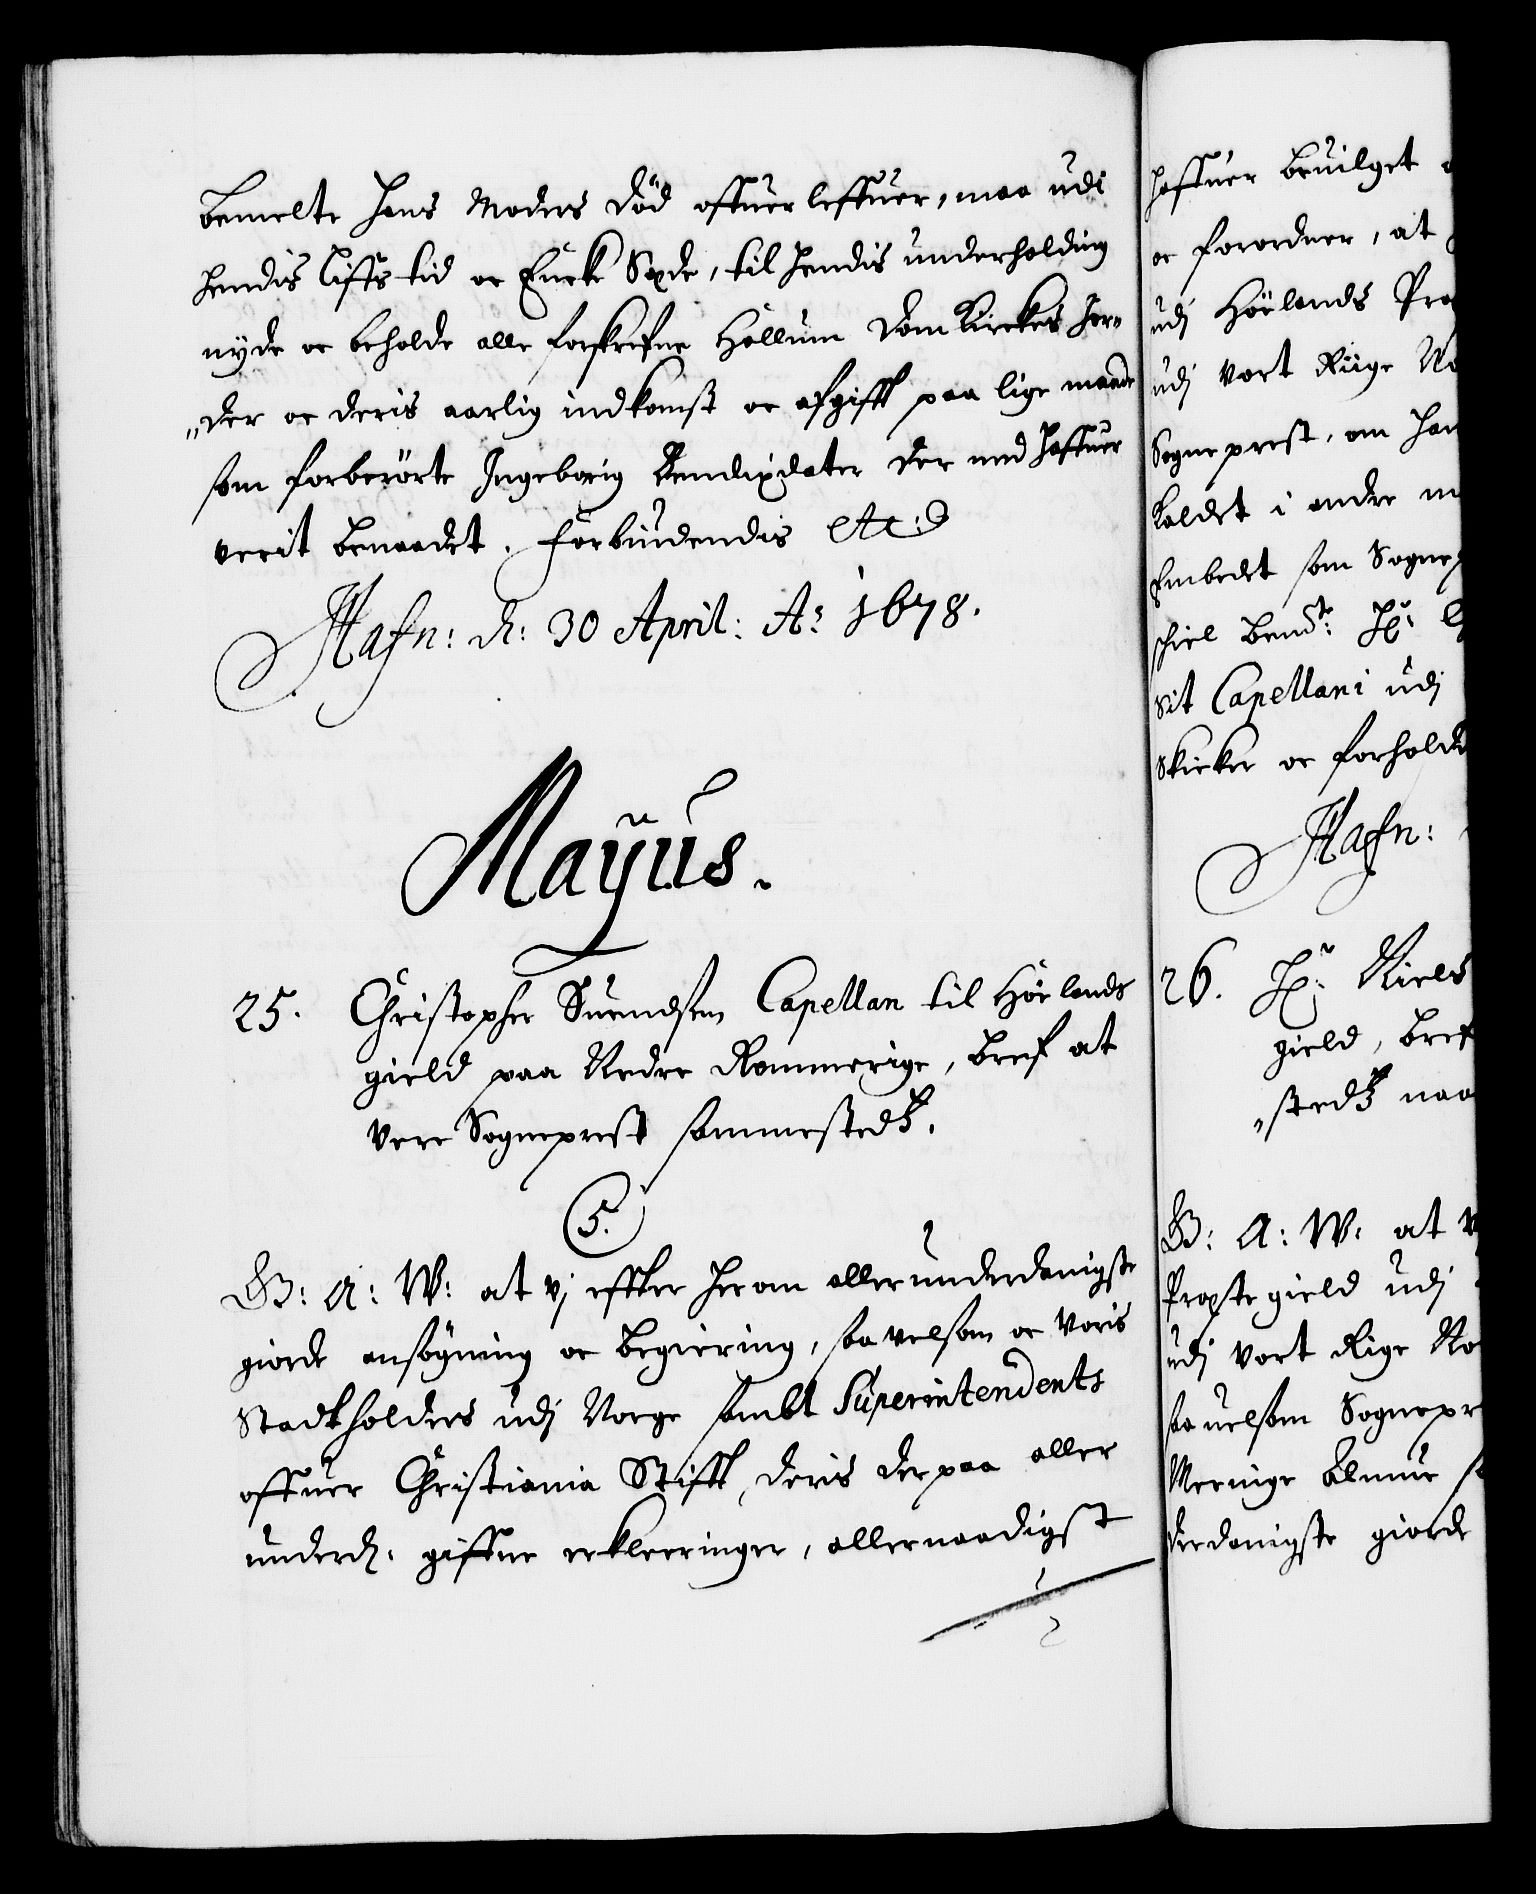 bemelte hans Moders död offuerleffuer, maa udi
hendis Liffs tid oc Encke Sæde, til hendis underholding
nyde oc beholde alle forskrefne Hollum Dom Kirckes Jor„
„der oc deris aarlig indkomst oc afgifft paa lige maade
som forberörte Ingeborig Bendixdater der med haffuer
verit benaadet. Forbiudendis etc:
Hafn: d: 30 April: A: 1678.
Mayus.
25. Christopher Suendsen Capellan til Höelands
gield paa Nedre Rommerige, bref at
vere Sogneprest sammestedtz.
5.
G: A: W: at vj effter her om allerunderdanigste
giorde ansögning oc begiering, saa velsom oc Voris
Stadtholders udj Norge sambt Superintendents
offuer Christiania Stifft, deris der paa aller
underd. giffne erkleeringer, allernaadigst
haffuer beuilget
oc forordner, at
udj Höelands Præ
udj vort Riige No
Sogneprest, om han
kaldet i andre m
Embedet som Sogne
schiel bemte: Hr:
sit Capellani udj
skicker oc forholde
Hafn:
26. Hr: Niels
gield, bref
„stedtz naa
G: A: W: at v
Præste gield udj
udj vort Rige No
saa uelsom Sognepr
Meenige Almue s
derdanigste giorde